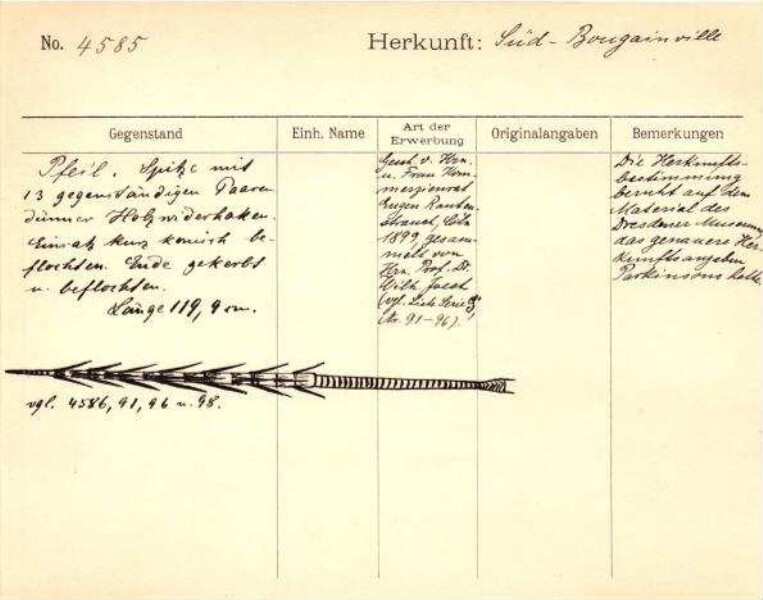 No. 4585
Herkunft: Süd-Bougainville
Gegenstand
Einh. Name
Art der
Erwerbung
Originalangaben
Bemerkungen
Pfeil. Spitze mit
13 gegenständigen Paaren
dünner Holzwiderhaken.
Einsatz kurz konisch be-
flochten. Ende gekerbt
u. beflochten.
Länge 119,9 cm.
vgl. 4586, 91, 96 u. 98.
Gesch. v. Hrn.
u. Frau Kom-
merzienrat
Eugen Rauten-
strauch, Cöln
1899, gesam-
melt von
Hrn. Prof. Dr.
Wilh. Joest
(vgl. Liste Serie
Nr. 91-96).
Die Herkunfts-
bestimmung
beruht auf dem
Material des
Dresdener Museums,
das genauere Her-
kunftsangaben
Parkinsons hatte.